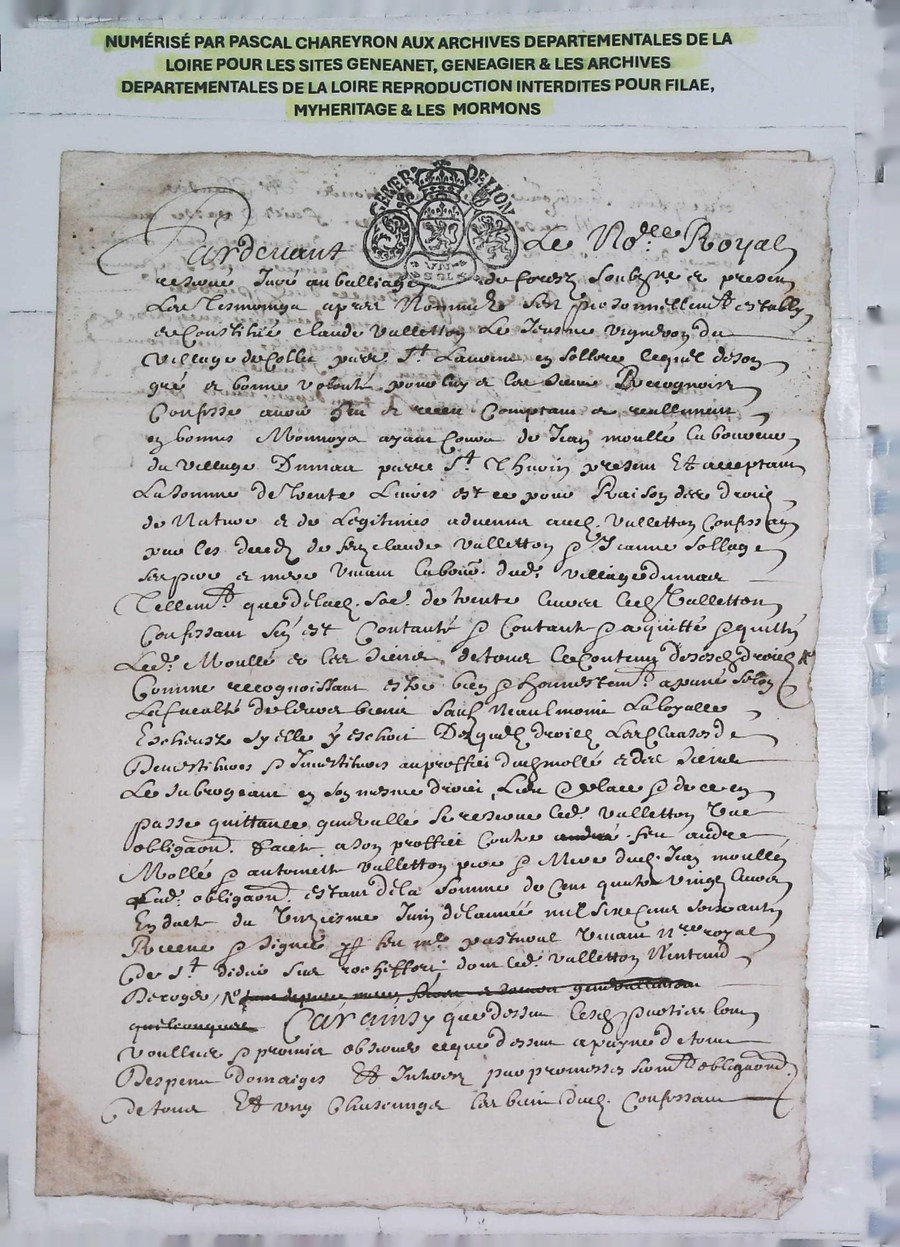 NUMÉRISÉ PAR PASCAL CHAREYRON AUX ARCHIVES DEPARTEMENTALES DE LA
LOIRE POUR LES SITES GENEANET, GENEAGIER & LES ARCHIVES
DEPARTEMENTALES DE LA LOIRE REPRODUCTION INTERDITES POUR FILAE,
MYHERITAGE & LES MORMONS
GENER DE LION
UN SOL
Pardevant Le No.re Royal
reservé Juré au balliage de forestz soubzne et presen
Les tesmoings apres Nommez sest personnellemt establ
et Constitué claude valletton Le Jeusne vigneron du
village de Collet parr. St Laurent en sollore lequel de son
gré et bonne volonté pour luy et les siens Recognoist
Confesse avoir heu et receu Comptant et reallement
en bonne Monnoye ayant Cours de Jean moullé laboureur
du village Dumas parre St Thurin present Et acceptant
La somme de trente Livres est ce pour Raison des droict
de Nature et de Legitimes advenus aud. valletton Confessan
par les deceds de feu claude valletton & Jeanne sollage
ses pere et mere vivant labour. dud. village dumas
Tellemt que de lad. so.e de trente livres led. Valletton
Confessant sen est Contanté & Contant & aquitté & quitté
Led. Moullé et les siens de tout le contenu desd. droict
Comme recognoissant estre bien & honnestemt apané selon
La faculté de leurs biens sauf neaulmoins La loyalle
Escheutte sy elle y eschoit Desquelz droictz
Devestitures & Investitures au proffict dud. mollé et des siens
Le subrogeant en son mesme droict, Lieu & place & de ce en
passe quittance generalle se reserve led. valletton une
obligaon. faict a son proffict contre feu andré
Mollé & antoinette valletton pere & Mere dud. Jean moullé
lad. obligaon estant de la somme de Cent quatre vingt livres
En datte du unziesme Juin de lannée mil six cens soixante
Receue & signée par feu me pastural vivant nre royal
de St didier sur rocheffort dont led. valletton Nentend
Deroger
quelconque Car ainsy que dessus lesd. parties lont
voullues & promis observer ce que dessus a payne de tous
Despens Domaiges Et Interestz par promesses sermt obligaons
de tous Et ung Chascungs les biens dud. Confessant